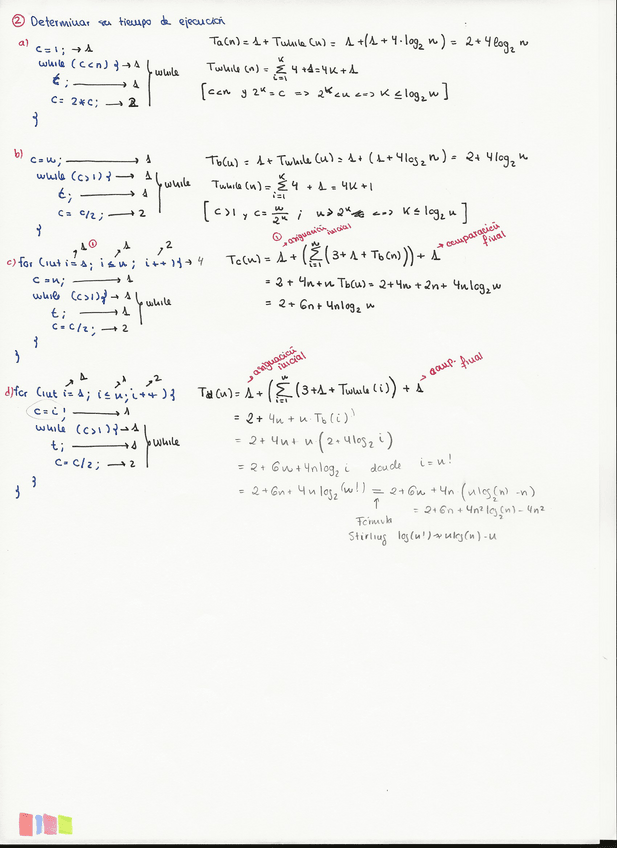 ② Determinar su tiempo de ejecución
a) c=1; → 1
while (c<n) { → 1
t; → 1
c= 2*c; → 2
}
while
Ta(n) = 1 + Twhile(n) = 1 + (1 + 4·log₂ n) = 2 + 4 log₂ n
Twhile(n) = Σ_{i=1}^{k} 4 + 1 = 4k + 1
[c<n y 2^k = c => 2^k < n <=> k ≤ log₂ n]
b) c=n; → 1
while (c>1) { → 1
t; → 1
c= c/2; → 2
}
while
Tb(n) = 1 + Twhile(n) = 1 + (1 + 4 log₂ n) = 2 + 4 log₂ n
Twhile(n) = Σ_{i=1}^{k} 4 + 1 = 4k + 1
[c>1 y c = n/2^k ; n > 2^k <=> k ≤ log₂ n]
1 ① 1 2
c) for (int i=1; i≤n; i++) { → 4
c=n; → 1
while (c>1) { → 1
t; → 1
c= c/2; → 2
}
}
while
① asignación inicial
comparación final
Tc(n) = 1 + (Σ_{i=1}^{n} (3 + 1 + Tb(n))) + 1
= 2 + 4n + n Tb(n) = 2 + 4n + 2n + 4n log₂ n
= 2 + 6n + 4n log₂ n
1 1 2
d) for (int i=1; i≤n; i++) {
c=i; → 1
while (c>1) { → 1
t; → 1
c= c/2; → 2
}
}
while
asignación inicial
comp. final
Td(n) = 1 + (Σ_{i=1}^{n} (3 + 1 + Twhile(i))) + 1
= 2 + 4n + n · Tb(i)
= 2 + 4n + n (2 + 4 log₂ i)
= 2 + 6n + 4n log₂ i donde i = n!
= 2 + 6n + 4n log₂(n!) = 2 + 6n + 4n (n log₂(n) - n)
= 2 + 6n + 4n² log₂(n) - 4n²
↑
Fórmula
Stirling log(n!) ≈ n log(n) - n